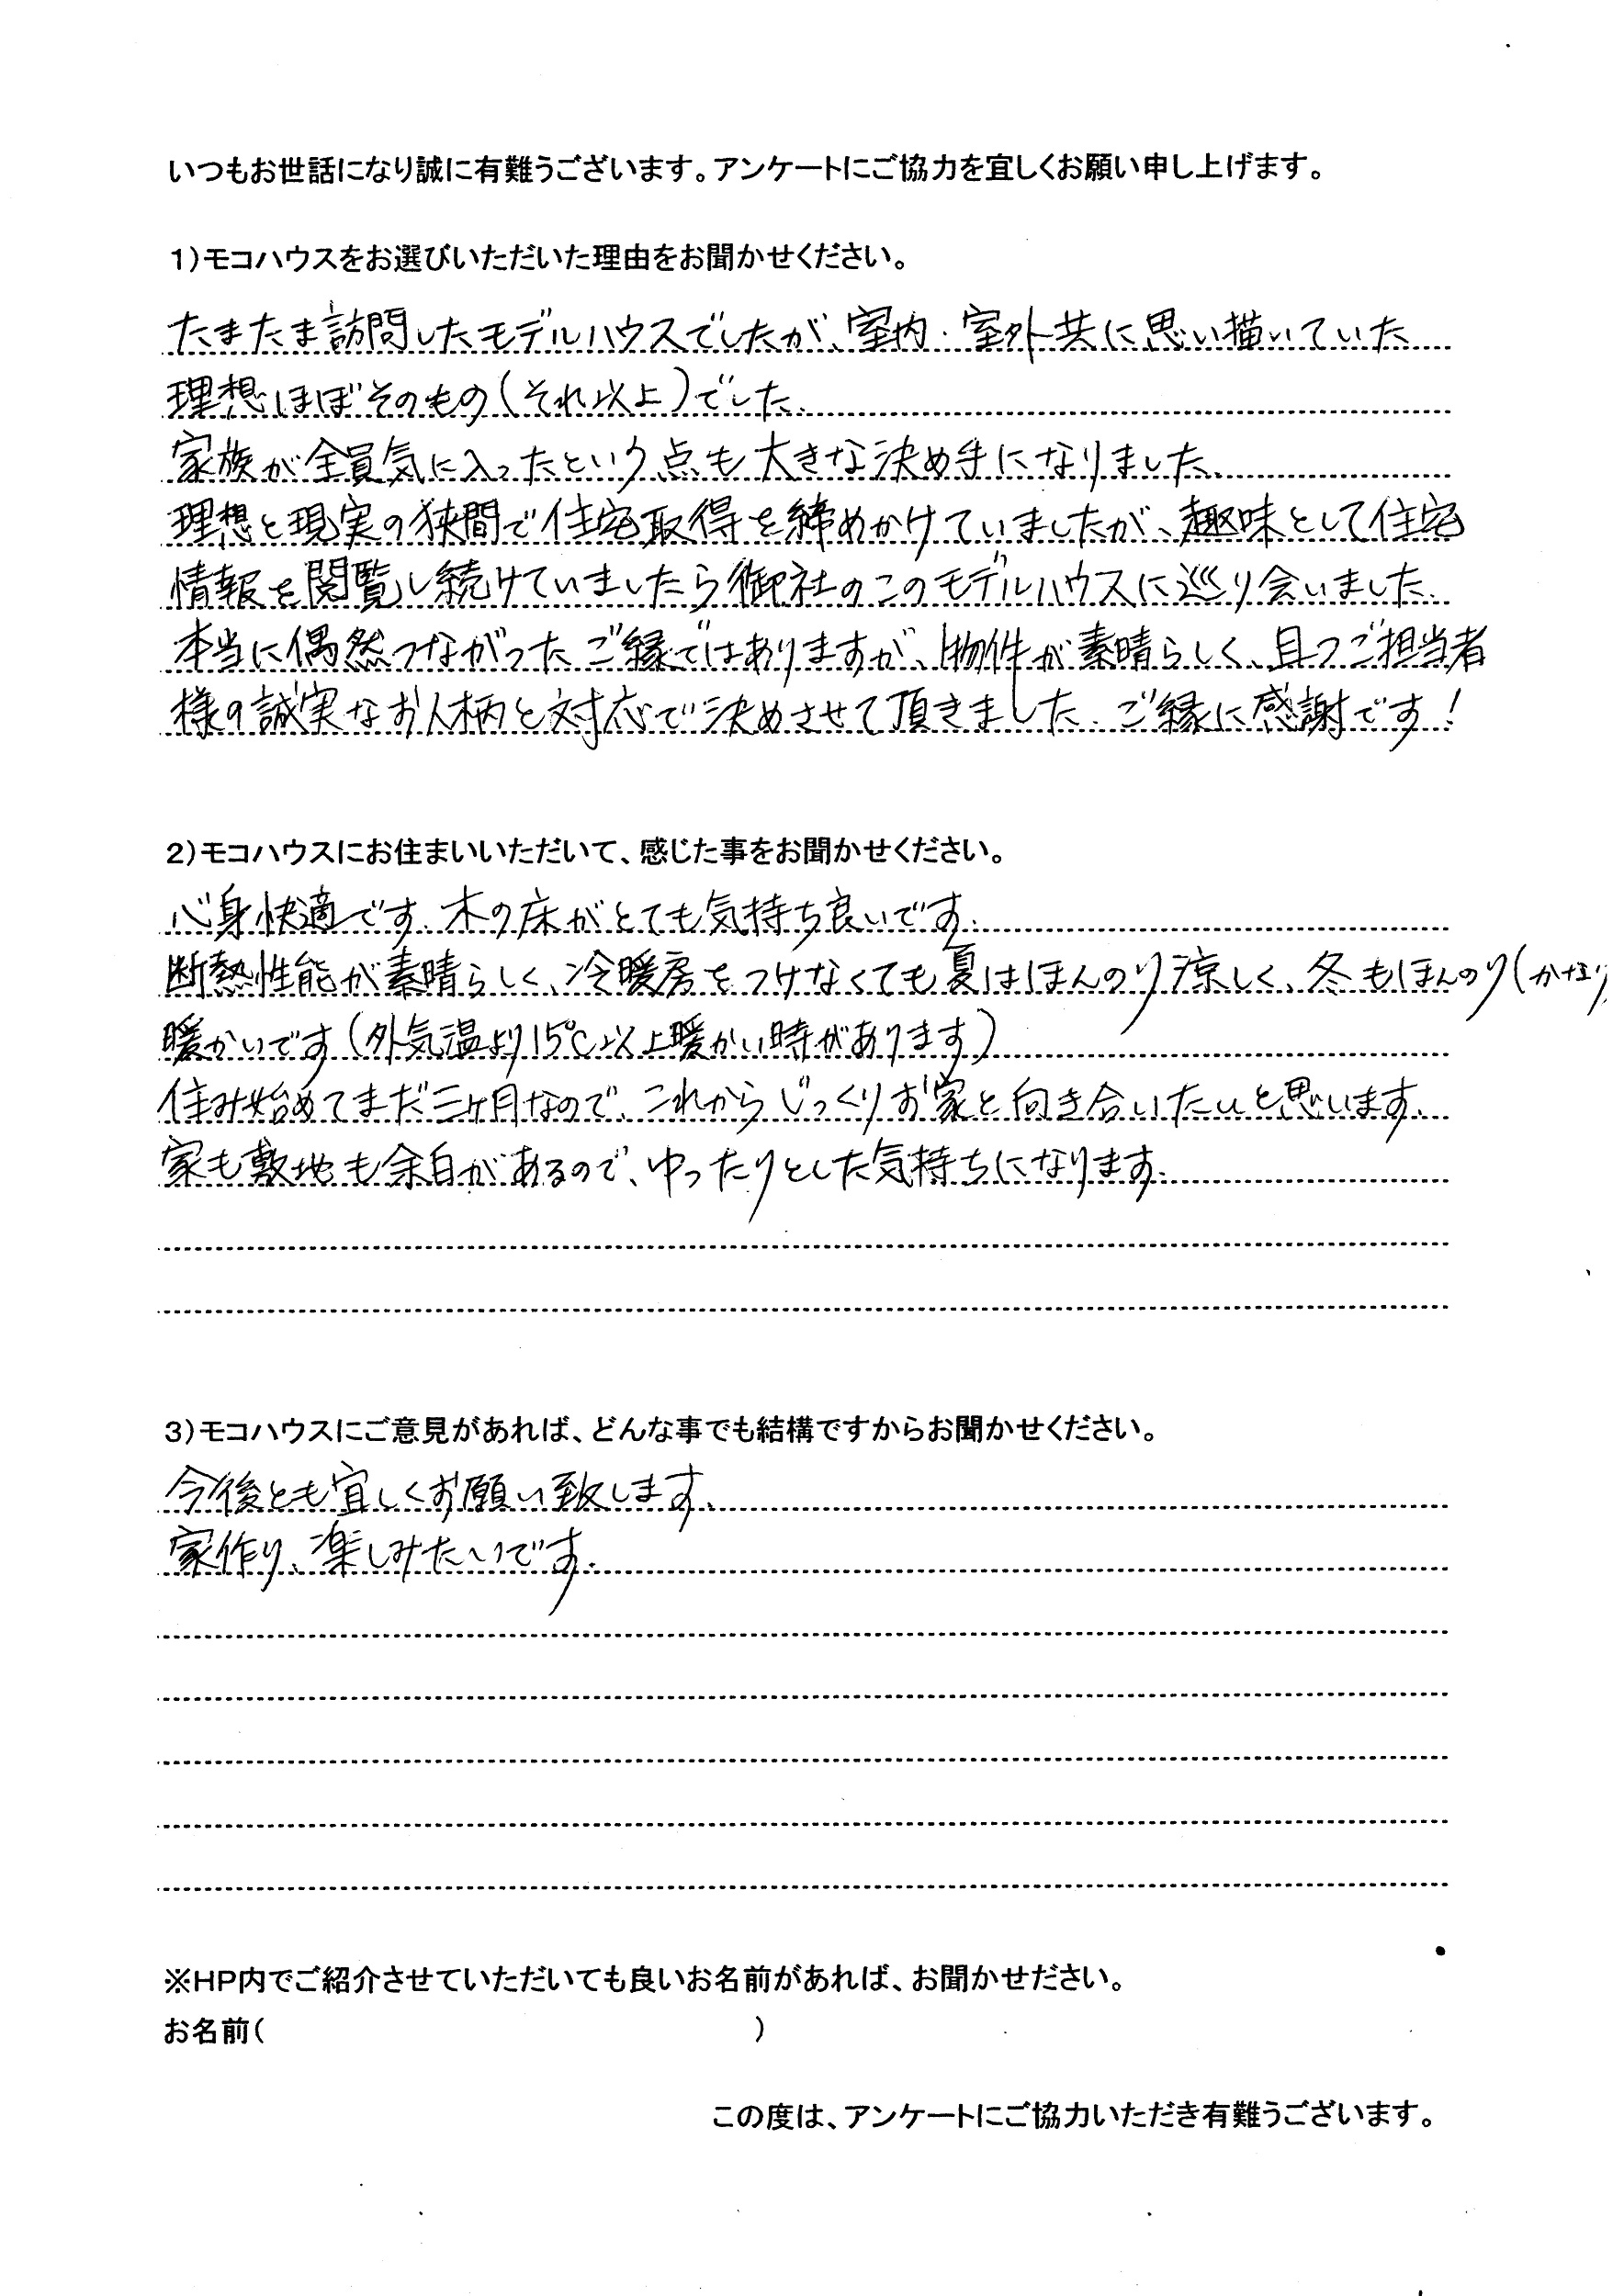 いつもお世話になり誠に有難うございます。アンケートにご協力を宜しくお願い申し上げます。
1)モコハウスをお選びいただいた理由をお聞かせください。
たまたま訪問したモデルハウスでしたが、室内・室外共に思い描いていた
理想ほぼそのもの(それ以上)でした。
家族が全員気に入ったという点も大きな決め手になりました。
理想と現実の狭間で住宅取得を締めかけていましたが、趣味として住宅
情報を閲覧し続けていましたら御社のこのモデルハウスに巡り会いました。
本当に偶然つながったご縁ではありますが、物件が素晴らしく、且つご担当者
様の誠実なお人柄と対応で決めさせて頂きました。ご縁に感謝です!
2)モコハウスにお住まいいただいて、感じた事をお聞かせください。
心身快適です。木の床がとても気持ち良いです。
断熱性能が素晴らしく、冷暖房をつけなくても夏はほんのり涼しく、冬もほんのり(かなり)
暖かいです(外気温より15℃以上暖かい時があります)
住み始めてまだ三ヶ月なので、これからじっくりお家と向き合いたいと思います。
家も敷地も余白があるので、ゆったりとした気持ちになります。
3)モコハウスにご意見があれば、どんな事でも結構ですからお聞かせください。
今後とも宜しくお願い致します。
家作り、楽しみたいです。
※HP内でご紹介させていただいても良いお名前があれば、お聞かせださい。
お名前( )
この度は、アンケートにご協力いただき有難うございます。